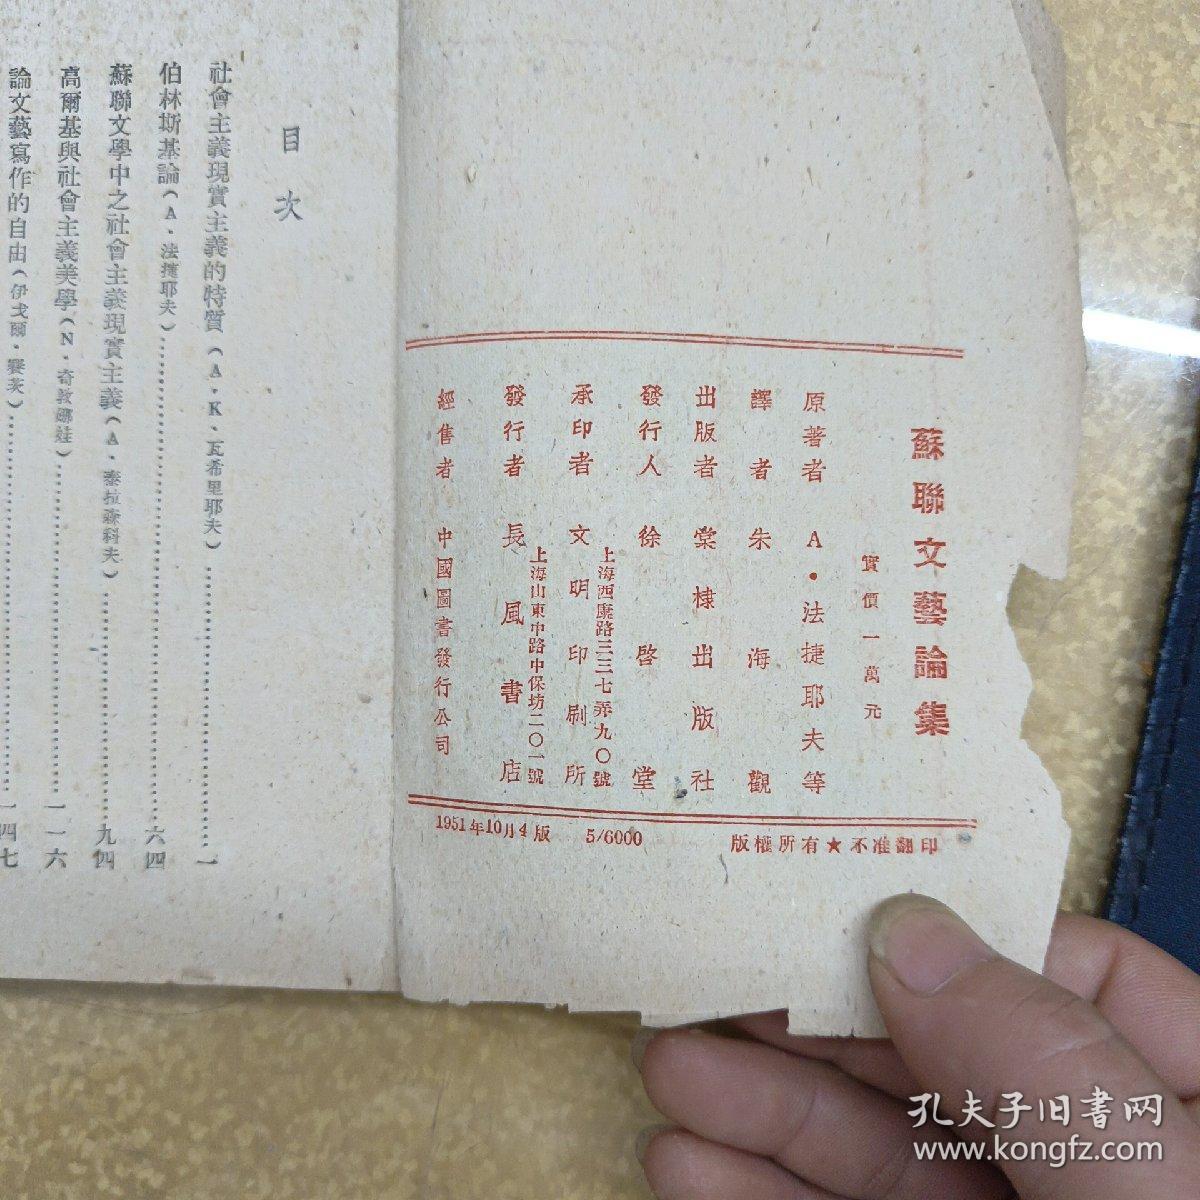 蘇聯文藝論集
實價一萬元
原著者 A·法捷耶夫等
譯者 朱海觀
出版者 棠棣出版社
發行人 徐啓堂
上海西康路三三七弄九〇號
承印者 文明印刷所
上海山東中路中保坊二〇一號
發行者 長風書店
經售者 中國圖書發行公司
1951年10月4版 5/6000 版權所有★不准翻印
目次
社會主義現實主義的特質(A·K·瓦希里耶夫)……一
伯林斯基論(A·法捷耶夫)……六四
蘇聯文學中之社會主義現實主義(A·泰拉森科夫)……九四
高爾基與社會主義美學(N·奇敦娜娃)……一一六
論文藝寫作的自由(伊戈爾·賽茨)……一四七
孔夫子旧书网
www.kongfz.com